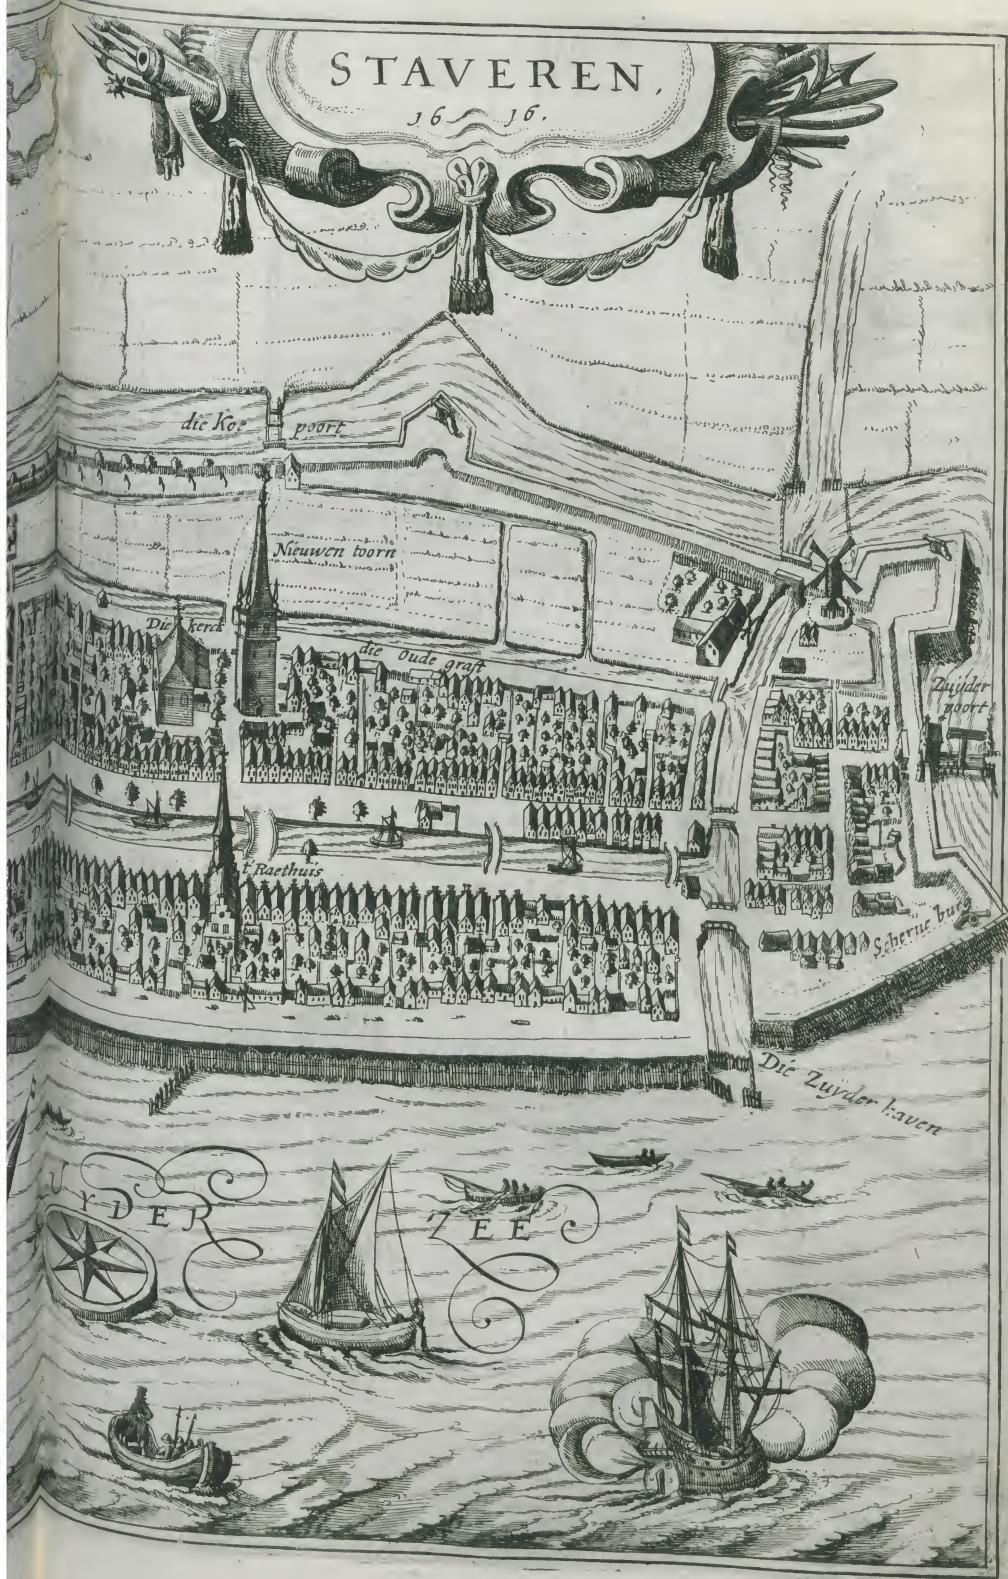 STAVEREN.
16 16.
die Koe poort
Nieuwen toorn
Die kerck
die oude graft
Zuyder
poort
't Raethuis
Scherne burg
Die Zuyder haven
UYDER ZEE